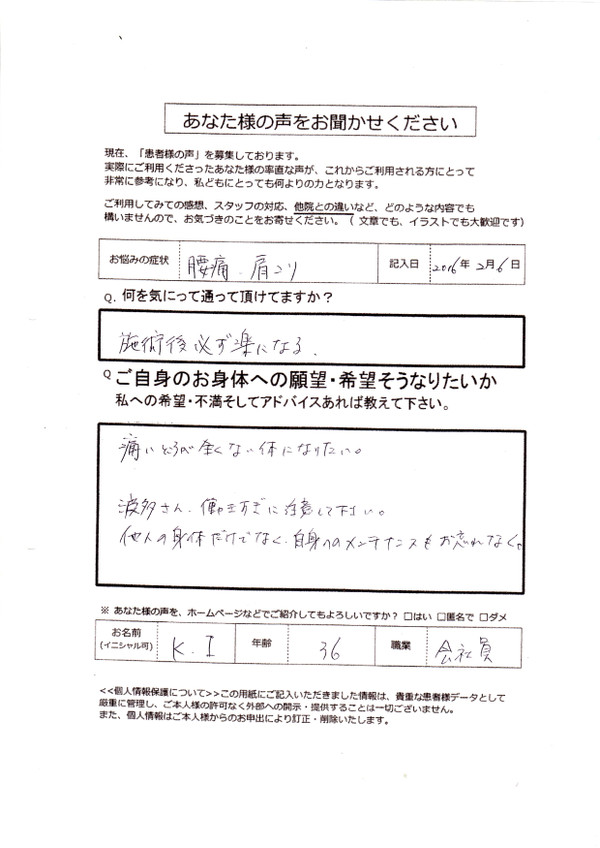 あなた様の声をお聞かせください
現在、「患者様の声」を募集しております。
実際にご利用くださったあなた様の率直な声が、これからご利用される方にとって
非常に参考になり、私どもにとっても何よりの力となります。
ご利用してみての感想、スタッフの対応、他院との違いなど、どのような内容でも
構いませんので、お気づきのことをお寄せください。（ 文章でも、イラストでも大歓迎です）
お悩みの症状 腰痛、肩コリ 記入日 2016年 2月6日
Q. 何を気にって通って頂けてますか？
施術後必ず楽になる.
Q ご自身のお身体への願望・希望そうなりたいか
私への希望・不満そしてアドバイスあれば教えて下さい。
痛いところが全くない体になりたい。
波多さん、働きすぎに注意して下さい。
他人の身体だけでなく、自身へのメンテナンスもお忘れなく。
※ あなた様の声を、ホームページなどでご紹介してもよろしいですか？ □はい □匿名で □ダメ
お名前 (イニシャル可) K.I 年齢 36 職業 会社員
<<個人情報保護について>>この用紙にご記入いただきました情報は、貴重な患者様データとして
厳重に管理し、ご本人様の許可なく外部への開示・提供することは一切ございません。
また、個人情報はご本人様からのお申出により訂正・削除いたします。